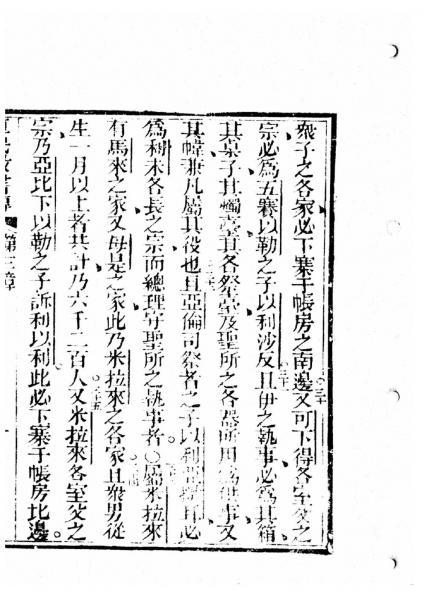 衆子之各家必下寨于帳房之南邊又可下得各室父之
宗必為五寨以勒之子以利沙反且伊之執事必為其箱
其桌子其燭臺其各祭臺及聖所之各器所用為供事又
其幃簾凡屬其役也且亞倫司祭者之子以利且必
為利未各長之宗而總理守聖所之執事者○屬米拉來
有馬來之家又母是之家此乃米拉來之各家且衆男從
生一月以上者共計乃六千二百人又米拉來各室父之
宗乃亞比下以勒之子訴利以利此必下寨于帳房北邊。
第三章